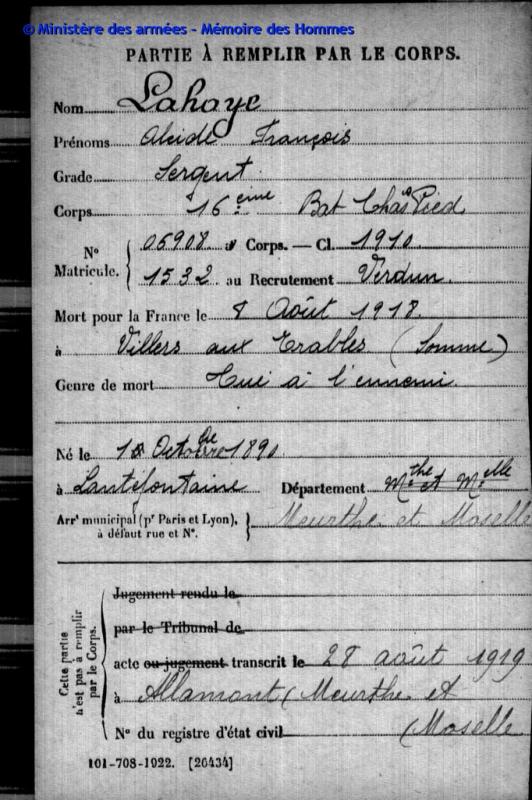 © Ministère des armées - Mémoire des Hommes
PARTIE À REMPLIR PAR LE CORPS.
Nom Lahaye
Prénoms Alcide François
Grade Sergent
Corps 16ème Bat Chas à Pied
Nº Matricule. { 06908 au Corps. — Cl. 1910
1532 au Recrutement Verdun
Mort pour la France le 8 Août 1918
à Villers aux Erables (Somme)
Genre de mort Tué à l'ennemi
Né le 18 Octobre 1890
à Lantéfontaine Département Mthe et Mlle
Arrt municipal (pr Paris et Lyon), à défaut rue et Nº. } Meurthe et Moselle
Cette partie n'est pas à remplir par le Corps.
Jugement rendu le
par le Tribunal de
acte ou jugement transcrit le 28 août 1919
à Allamont (Meurthe et
Moselle
Nº du registre d'état civil
101-708-1922. [26434]